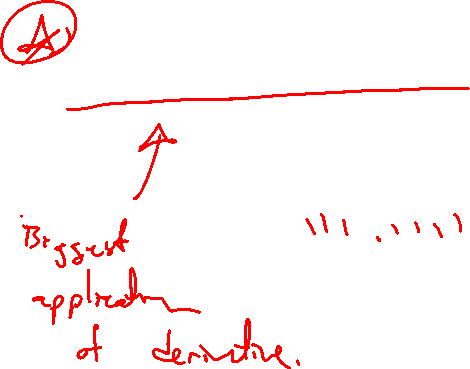 A
Biggest
application
of derivative.